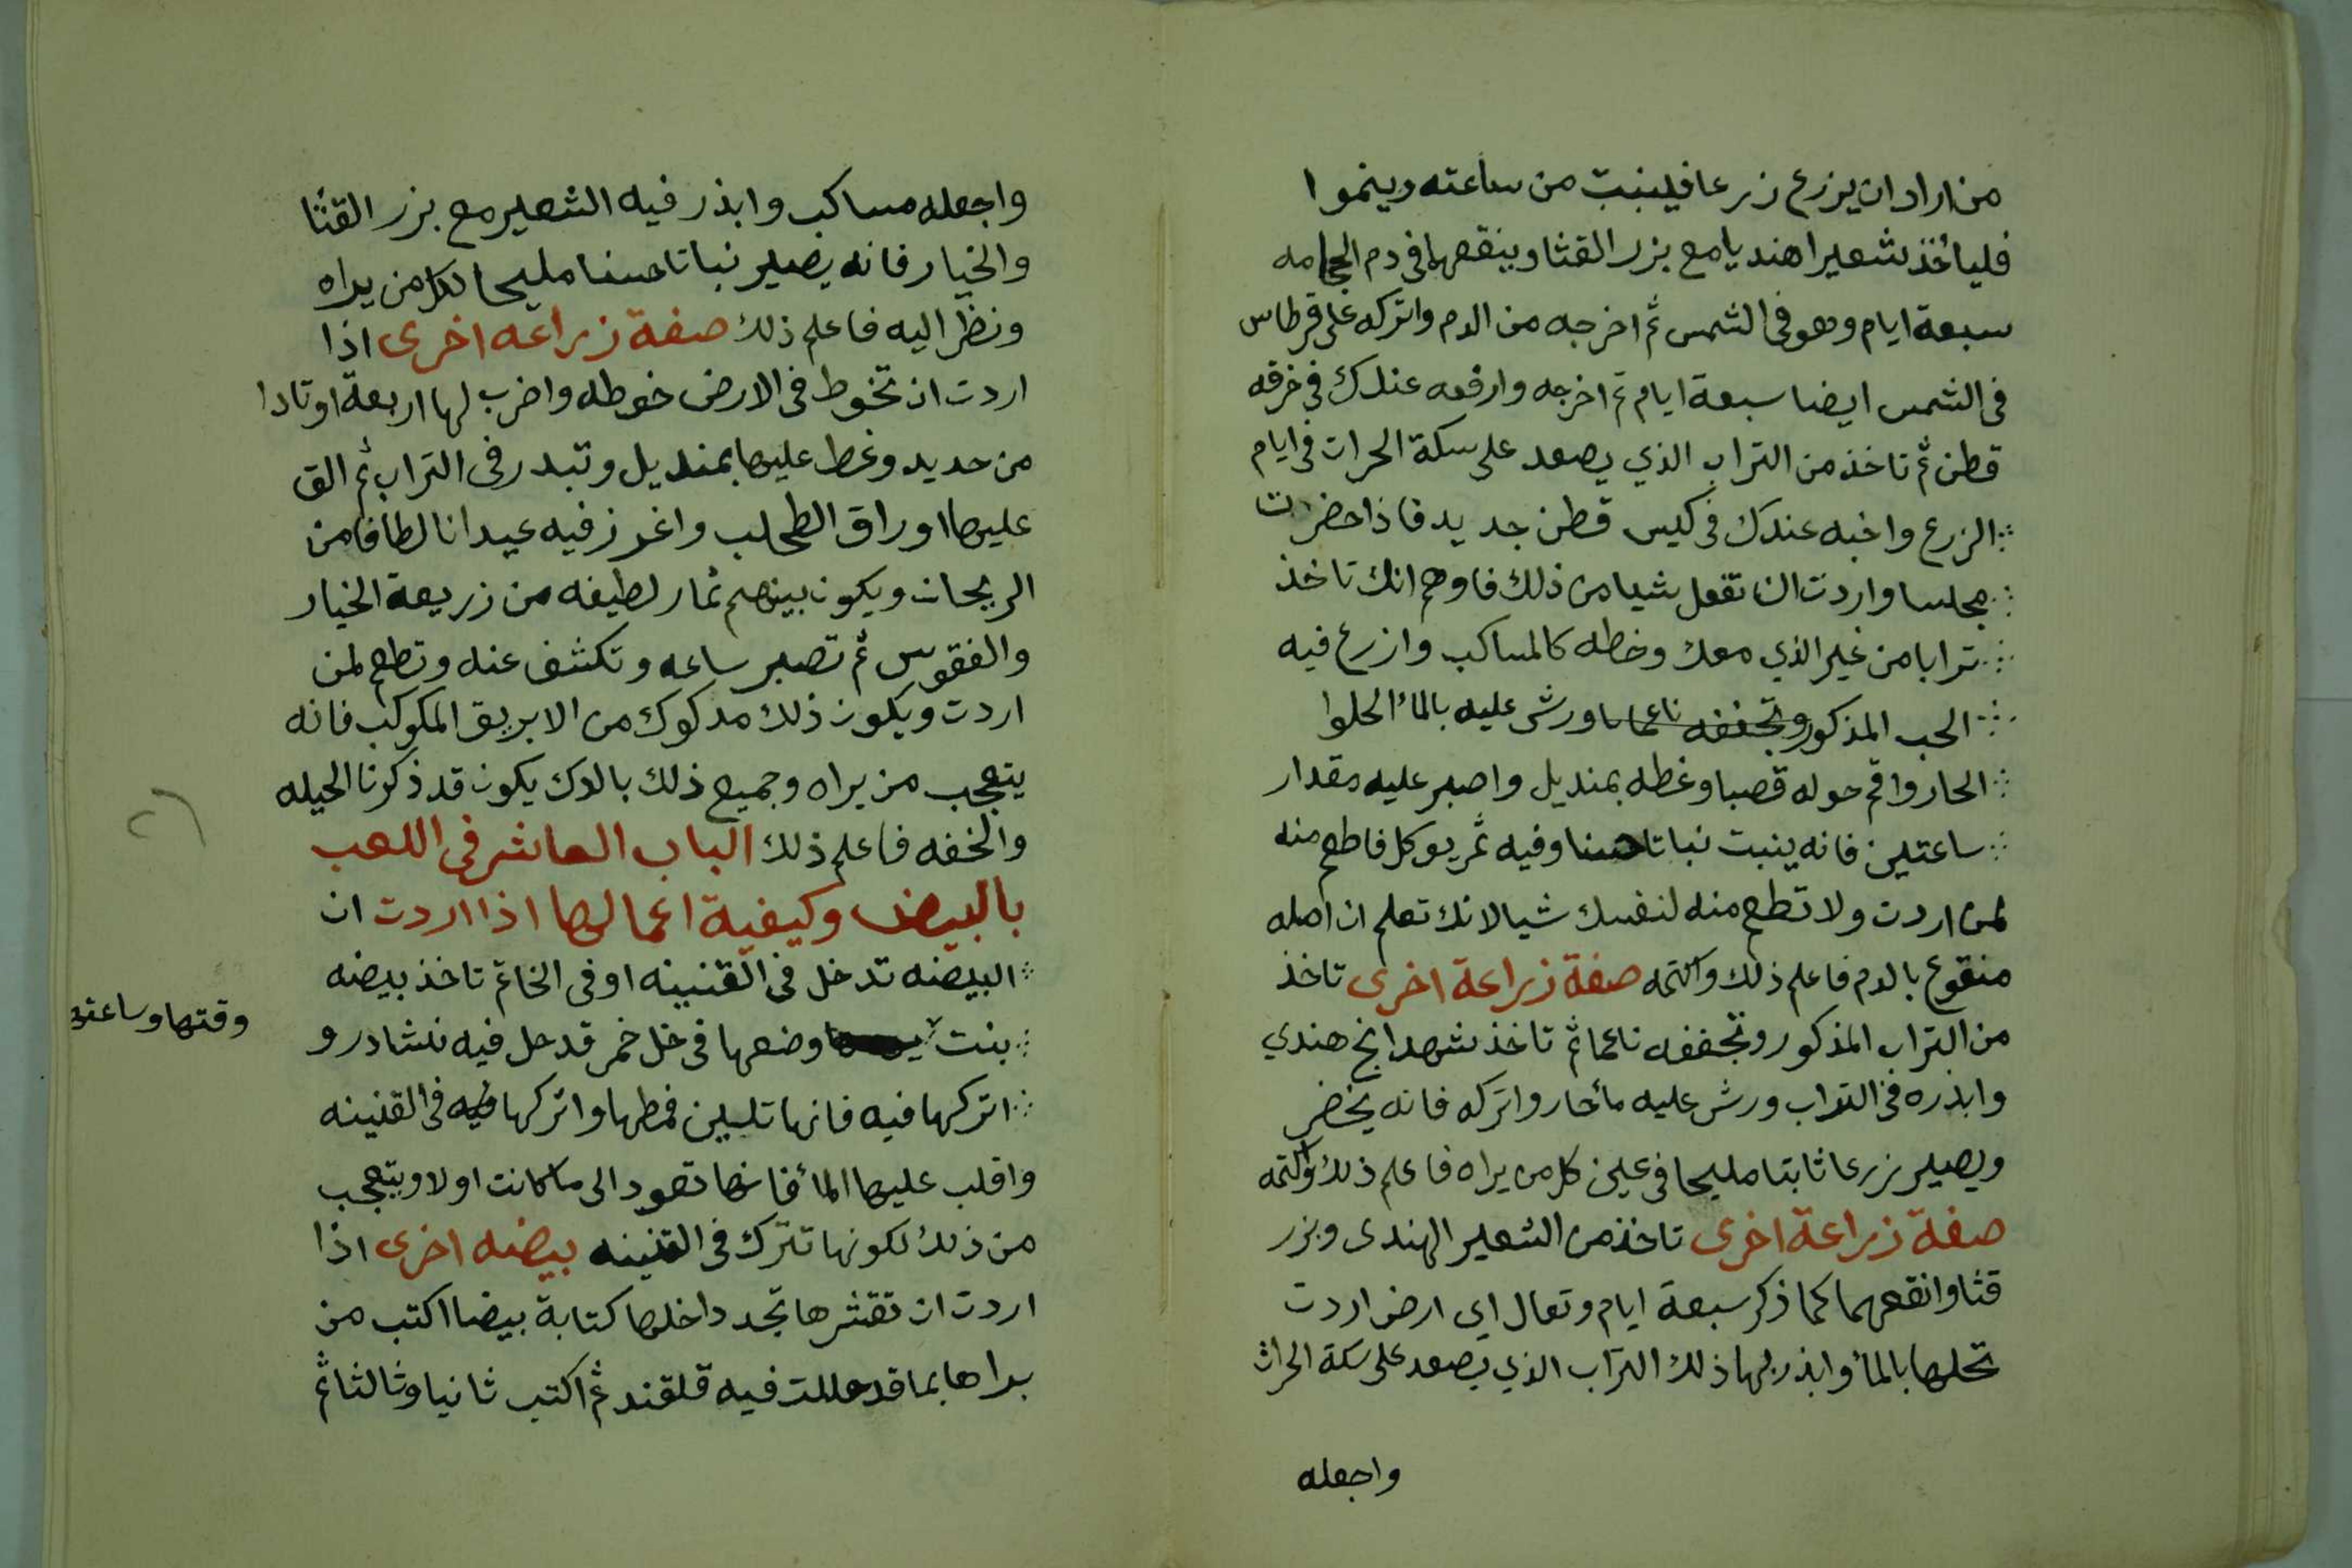 من اراد ان يزرع زرعا فلينبت من ساعته وينموا
فليأخذ شعيرا هنديا مع بزر القثا وينقعهما في دم الحجامه
سبعة ايام وهو في الشمس ثم اخرجه من الدم واتركه على قرطاس
في الشمس ايضا سبعة ايام ثم اخرجه وارفعه عندك في خرقه
قطن ثم تاخذ من التراب الذي يصعد على سكة الحرات في ايام
الزرع واخبه عندك في كيس قطن جديد فاذا حضرت
مجلسا واردت ان تفعل شيا من ذلك فاوهم انك تاخذ
ترابا من غير الذي معك وخطه كالمساكب وازرع فيه
الحب المذكور وتجففه ناعما ورش عليه بالمأ الحلوا
الحار واقم حوله قصبا وغطه بمنديل واصبر عليه مقدار
ساعتين فانه ينبت نباتا حسنا وفيه ثمر يوكل فاطعم منه
لمن اردت ولا تطعم منه لنفسك شيا لانك تعلم ان اصله
منقوع بالدم فاعلم ذلك واكتمه صفة زراعة اخرى تاخذ
من التراب المذكور وتجففه ناعما ثم تاخذ شهدانج هندي
وابذره في التراب ورش عليه مأ حار واتركه فانه يخضر
ويصير زرعا ثابتا مليحا في عين كل من يراه فاعلم ذلك واكتمه
صفة زراعة اخرى تاخذ من الشعير الهندى وبزر
قثا وانقعهما كما ذكر سبعة ايام وتعال اي ارض اردت
تحلها بالمأ وابذر بها ذلك التراب الذي يصعد على سكة الحراث
واجعله
واجعله مساكب وابذر فيه الشعير مع بزر القثا
والخيار فانه يصير نباتا حسنا مليحا لكل من يراه
ونظر اليه فاعلم ذلك صفة زراعه اخرى اذا
اردت ان تخوط في الارض خوطه واضرب لها اربعة اوتادا
من حديد وغط عليها بمنديل وتبدر في التراب ثم الق
عليها اوراق الطحلب واغرز فيه عيدانا لطافا من
الريحان ويكون بينهم ثمار لطيفه من زريعة الخيار
والفقوس ثم تصبر ساعه وتكشف عنه وتطعم لمن
اردت ويكون ذلك مدكوك من الابريق المكوكب فانه
يتعجب من يراه وجميع ذلك بالدك يكون قد ذكرنا الحيله
والخفه فاعلم ذلك الباب العاشر في اللعب
بالبيض وكيفية اعمالها اذا اردت ان
البيضه تدخل في القنينه او في الخاتم تاخذ بيضه
بنت وضعها في خل خمر قد حل فيه نشادر و
وقتها وساعتها
اتركها فيه فانها تلين فمطها واتركها فيه في القنينه
واقلب عليها المأ فانها تعود الى ما كانت اولا ويتعجب
من ذلك لكونها تترك في القنينه بيضه اخرى اذا
اردت ان تقشرها تجد داخلها كتابة بيضا اكتب من
براها بما قد حللت فيه قلقند ثم اكتب ثانيا وثالثا ثم